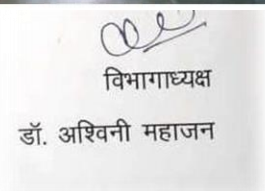 विभागाध्यक्ष
डॉ. अश्विनी महाजन